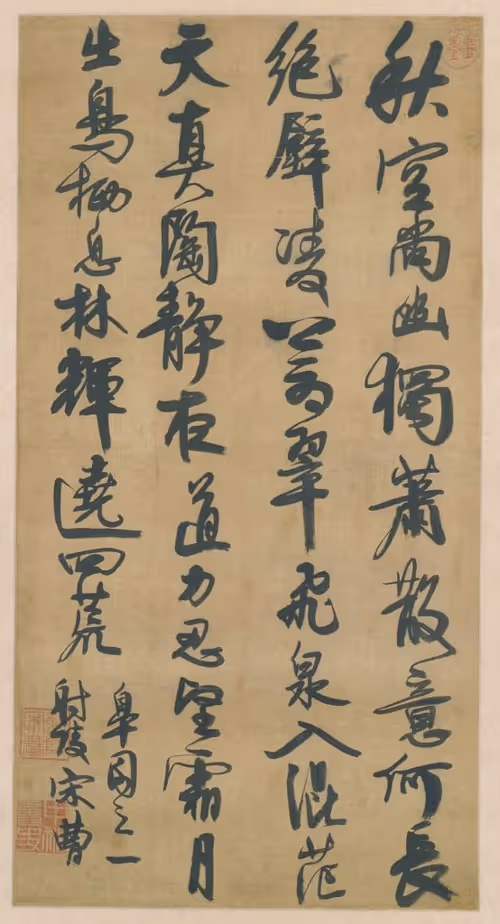 秋空尚幽獨蕭散意何長
絕壁凌蒼翠飛泉入混茫
天真陶靜夜道力忍堅霜月
出鳥栖息林輝遶四荒
皋園之一
射陵宋曹